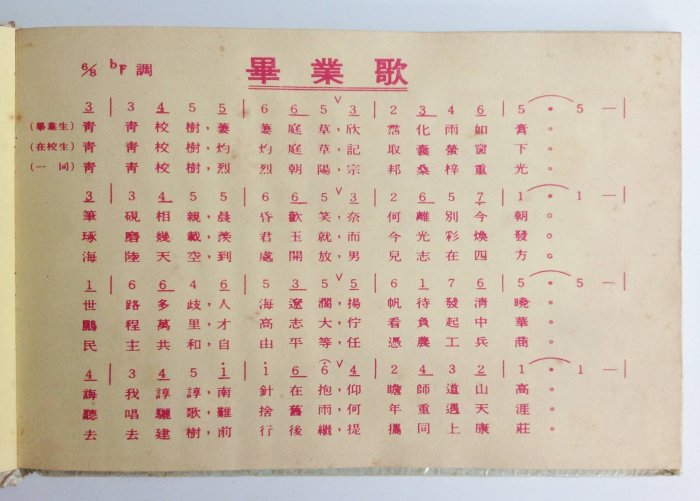 畢業歌
6/8 bF 調
3 | 3 4 5 5 | 6 6 5 ∨ 3 | 2 3 4 6 | 5 · 5 — |
(畢業生) 青 青校樹,萋 萋庭草,欣 霑化雨如 膏。
(在校生) 青 青校樹,灼 灼庭草,記 取囊螢窗 下。
(一同) 青 青校樹,烈 烈朝陽,宗 邦桑梓重 光。
3 | 3 4 5 5 | 6 6 5 ∨ 3 | 2 6 5 7 | 1 · 1 — |
筆 硯相親,晨 昏歡笑,奈 何離別今 朝。
琢 磨幾載,羨 君玉就,而 今光彩煥 發。
海 陸天空,到 處開放,男 兒志在四 方。
1 | 6 6 4 6 | 6 6 5 ∨ 5 | 6 1 7 6 | 5 · 5 — |
世 路多歧,人 海遼濶,揚 帆待發清 曉。
鵬 程萬里,才 高志大,佇 看負起中 華。
民 主共和,自 由平等,任 憑農工兵 商。
4 | 3 4 5 i | i 6 6 ∨ 4 | 2 4 3 2 | 1 · 1 — |
誨 我諄諄,南 針在抱,仰 瞻師道山 高。
聽 唱驪歌,難 捨舊雨,何 年重遇天 涯。
去 去建樹,前 行後繼,提 攜同上康 莊。